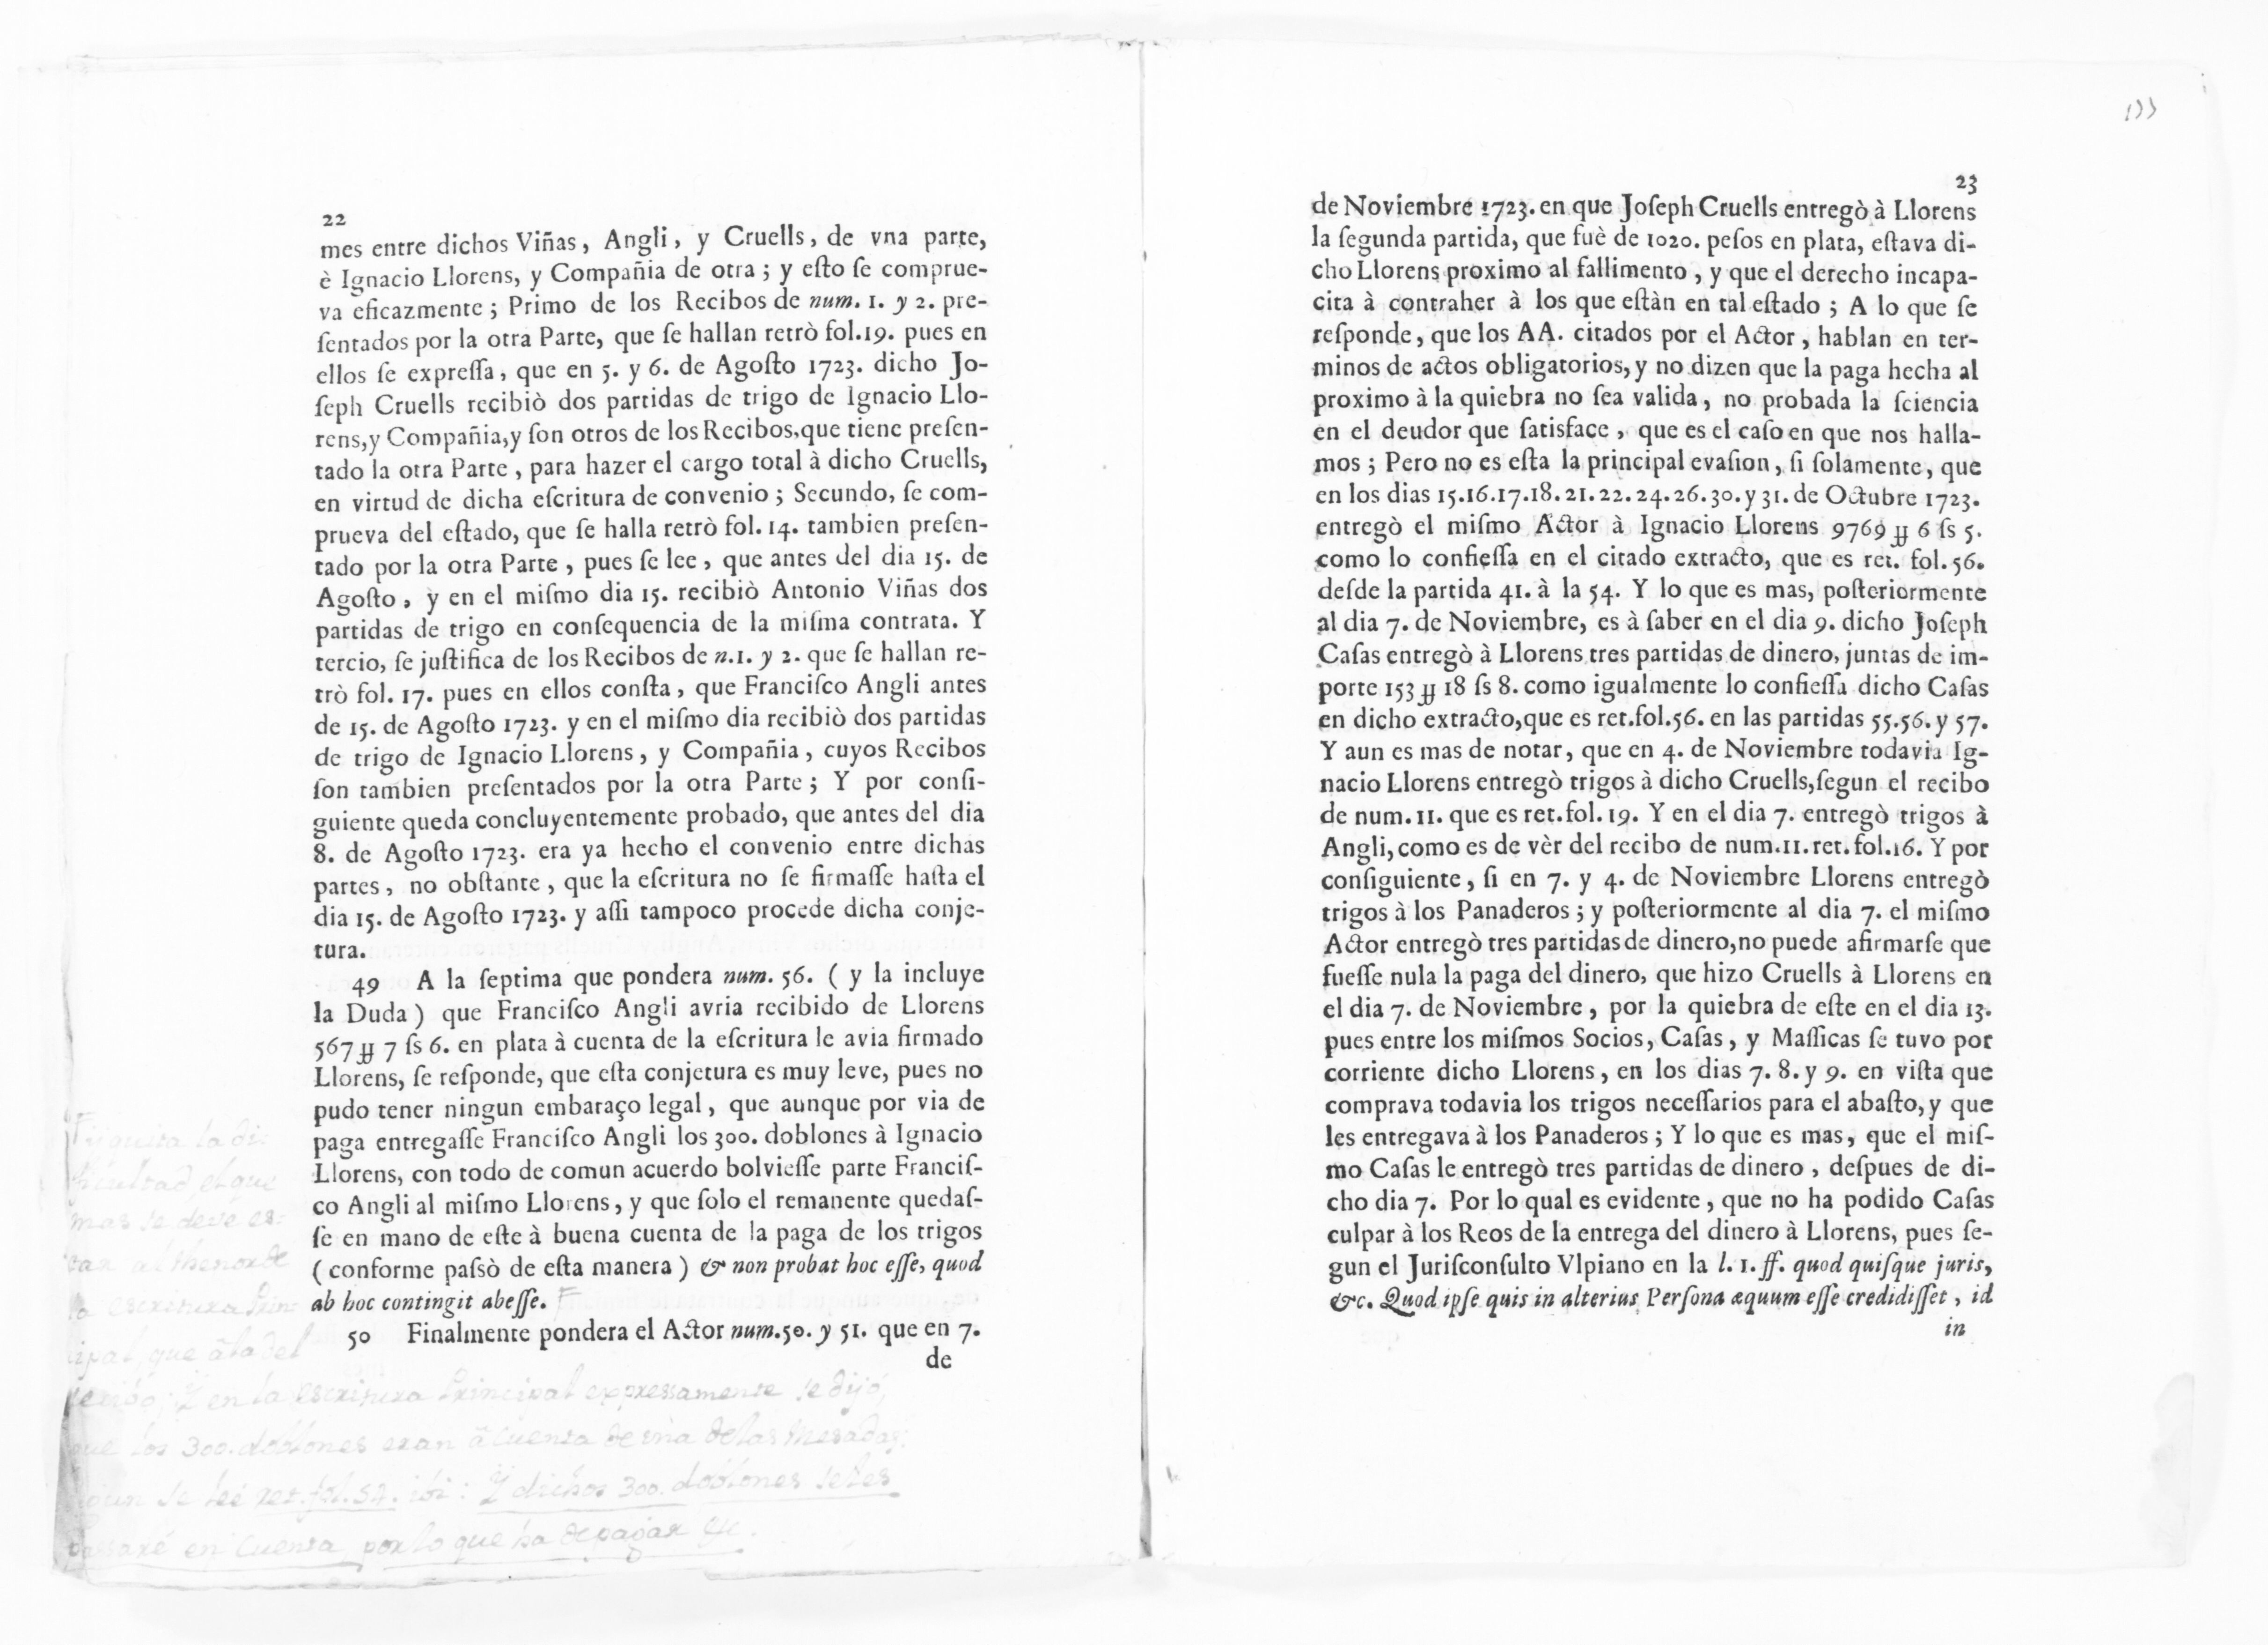 22
mes entre dichos Viñas, Angli, y Cruells, de vna parte,
è Ignacio Llorens, y Compañia de otra; y eſto ſe comprue-
va eficazmente; Primo de los Recibos de num. 1. y 2. pre-
ſentados por la otra Parte, que ſe hallan retrò fol.19. pues en
ellos ſe expreſſa, que en 5. y 6. de Agoſto 1723. dicho Jo-
ſeph Cruells recibiò dos partidas de trigo de Ignacio Llo-
rens,y Compañia,y ſon otros de los Recibos,que tiene preſen-
tado la otra Parte, para hazer el cargo total à dicho Cruells,
en virtud de dicha eſcritura de convenio; Secundo, ſe com-
prueva del eſtado, que ſe halla retrò fol. 14. tambien preſen-
tado por la otra Parte, pues ſe lee, que antes del dia 15. de
Agoſto, y en el miſmo dia 15. recibiò Antonio Viñas dos
partidas de trigo en conſequencia de la miſma contrata. Y
tercio, ſe juſtifica de los Recibos de n.1. y 2. que ſe hallan re-
trò fol. 17. pues en ellos conſta, que Franciſco Angli antes
de 15. de Agoſto 1723. y en el miſmo dia recibiò dos partidas
de trigo de Ignacio Llorens, y Compañia, cuyos Recibos
ſon tambien preſentados por la otra Parte; Y por conſi-
guiente queda concluyentemente probado, que antes del dia
8. de Agoſto 1723. era ya hecho el convenio entre dichas
partes, no obſtante, que la eſcritura no ſe firmaſſe haſta el
dia 15. de Agoſto 1723. y aſſi tampoco procede dicha conje-
tura.
49 A la ſeptima que pondera num. 56. ( y la incluye
la Duda ) que Franciſco Angli avria recibido de Llorens
567 ℔ 7 ſs 6. en plata à cuenta de la eſcritura le avia firmado
Llorens, ſe reſponde, que eſta conjetura es muy leve, pues no
pudo tener ningun embaraço legal, que aunque por via de
paga entregaſſe Franciſco Angli los 300. doblones à Ignacio
Llorens, con todo de comun acuerdo bolvieſſe parte Franciſ-
co Angli al miſmo Llorens, y que ſolo el remanente quedaſ-
ſe en mano de eſte à buena cuenta de la paga de los trigos
( conforme paſsò de eſta manera ) & non probat hoc eſſe, quod
ab hoc contingit abeſſe. F
50 Finalmente pondera el Actor num.50. y 51. que en 7.
de
F y quita la di-
ficultad, el que
mas se deve es-
tar al thenor de
la escritura Prin-
cipal, que â la del
recibo; Y en la escritura Principal expressamente se dijó,
que los 300. doblones eran â cuenta de vna de las mesadas;
segun se leé ret. fol. 57. ibi: Y dichos 300. doblones se les
passaré en cuenta, por lo que ha de pagar &c.
133
23
de Noviembre 1723. en que Joſeph Cruells entregò à Llorens
la ſegunda partida, que fuè de 1020. peſos en plata, eſtava di-
cho Llorens proximo al fallimento, y que el derecho incapa-
cita à contraher à los que eſtàn en tal eſtado; A lo que ſe
reſponde, que los AA. citados por el Actor, hablan en ter-
minos de actos obligatorios, y no dizen que la paga hecha al
proximo à la quiebra no ſea valida, no probada la ſciencia
en el deudor que ſatisface, que es el caſo en que nos halla-
mos; Pero no es eſta la principal evaſion, ſi ſolamente, que
en los dias 15.16.17.18.21.22.24.26.30. y 31. de Octubre 1723.
entregò el miſmo Actor à Ignacio Llorens 9769 ℔ 6 ſs 5.
como lo confieſſa en el citado extracto, que es ret. fol. 56.
deſde la partida 41. à la 54. Y lo que es mas, poſteriormente
al dia 7. de Noviembre, es à ſaber en el dia 9. dicho Joſeph
Caſas entregò à Llorens tres partidas de dinero, juntas de im-
porte 153 ℔ 18 ſs 8. como igualmente lo confieſſa dicho Caſas
en dicho extracto,que es ret.fol.56. en las partidas 55.56. y 57.
Y aun es mas de notar, que en 4. de Noviembre todavia Ig-
nacio Llorens entregò trigos à dicho Cruells,ſegun el recibo
de num.11. que es ret.fol.19. Y en el dia 7. entregò trigos à
Angli,como es de vèr del recibo de num.11.ret.fol.16. Y por
conſiguiente, ſi en 7. y 4. de Noviembre Llorens entregò
trigos à los Panaderos; y poſteriormente al dia 7. el miſmo
Actor entregò tres partidas de dinero,no puede afirmarſe que
fueſſe nula la paga del dinero, que hizo Cruells à Llorens en
el dia 7. de Noviembre, por la quiebra de eſte en el dia 13.
pues entre los miſmos Socios, Caſas, y Maſſicas ſe tuvo por
corriente dicho Llorens, en los dias 7. 8. y 9. en viſta que
comprava todavia los trigos neceſſarios para el abaſto, y que
les entregava à los Panaderos; Y lo que es mas, que el miſ-
mo Caſas le entregò tres partidas de dinero, deſpues de di-
cho dia 7. Por lo qual es evidente, que no ha podido Caſas
culpar à los Reos de la entrega del dinero à Llorens, pues ſe-
gun el Juriſconſulto Vlpiano en la l. 1. ff. quod quiſque juris,
&c. Quod ipſe quis in alterius Perſona æquum eſſe credidiſſet, id
in